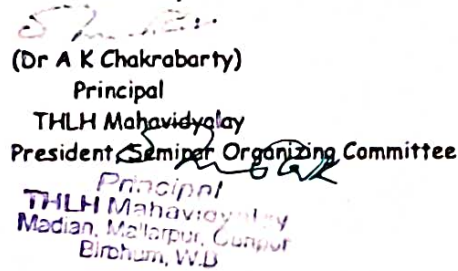 (Dr A K Chakrabarty)
Principal
THLH Mahavidyalay
President, Seminar Organizing Committee
Principal
THLH Mahavidyalay
Madian, Mallarpur,
Birbhum, W.B